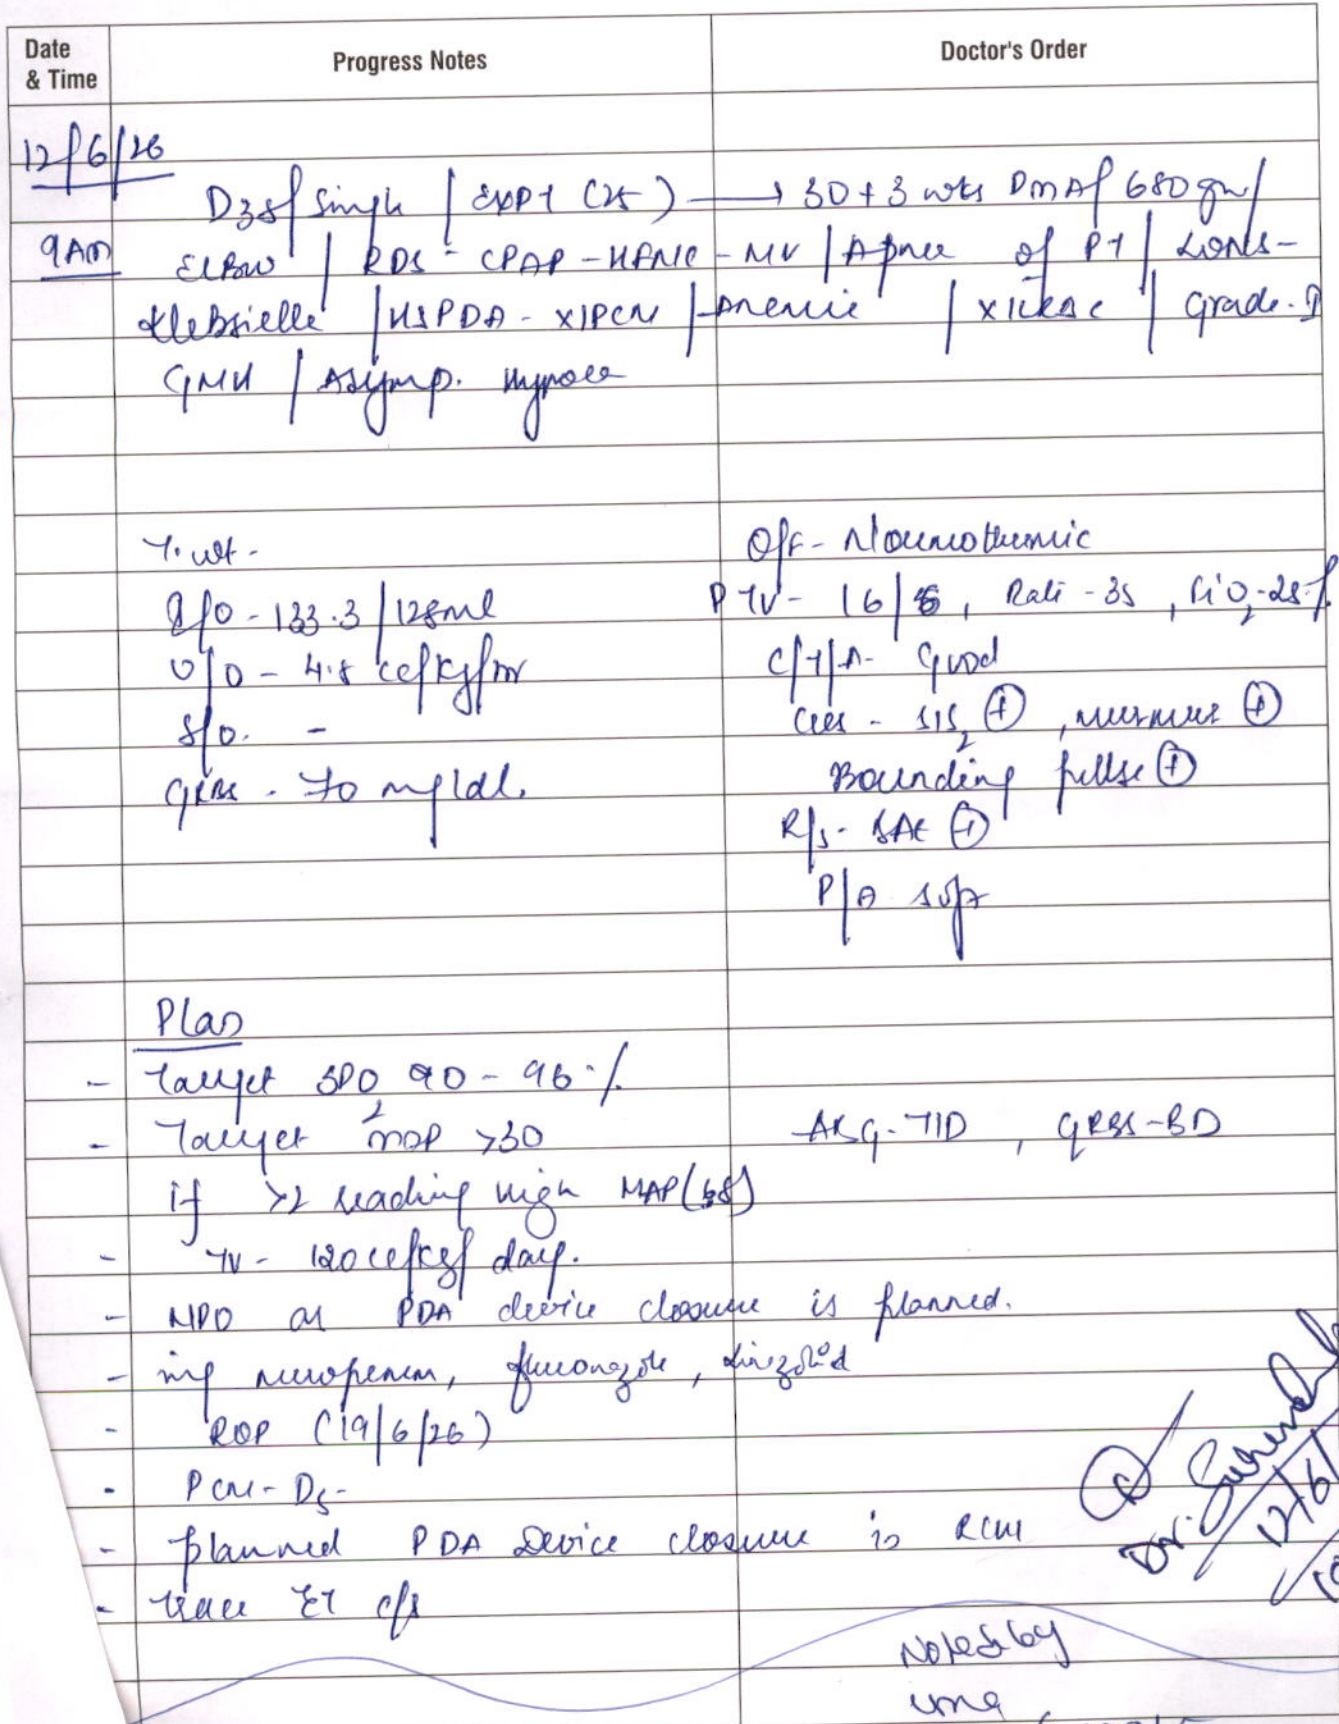 Date & Time
Progress Notes
Doctor's Order
12/6/26
9AM
D38/ Singh / EXPT (25) → 30+3 wks PMA/ 680gm/
ELBW / RDS - CPAP - HFNC - MV / Apnea of PT / LONS -
Klebsielle / HSPDA - X1PCM / Anemic / X1 / Grade-I
GMH / Asymp.
T. wt -
I/O - 133.3 / 128ml
U/O - 4.8 cc/kg/hr
S/O. -
GRBS - 70 mg/dl.
O/E - Normothermic
PTV - 16/6, Rate - 35, FiO2 - 28%
C/T/A - Good
CVS - S1S2 +, murmur +
Bounding pulse +
R/S - BAE +
P/A soft
Plan
- Target SPO2 90 - 96 %
- Target MAP >30
ABG - TID, GRBS - BD
if >2 reading high MAP
- TV - 120 cc/kg/ day.
- NPO as PDA device closure is planned.
- inj meropenem, fluconazole, linezolid
- ROP (19/6/26)
- PCM - D5 -
- planned PDA Device closure in
- trace ET c/s
Dr.
12/6/
Noted by